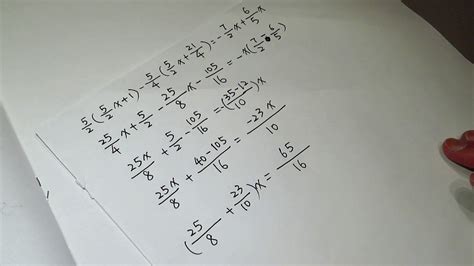 5/2(5/2x+1)-5/4(5/2x+21/4)=-7/2x+6/5x
25/4x+5/2-25/8x-105/16=-x(7/2-6/5)
25x/8+5/2-105/16=-(35-12/10)x
25x/8+40-105/16=-23x/10
(25/8+23/10)x=65/16